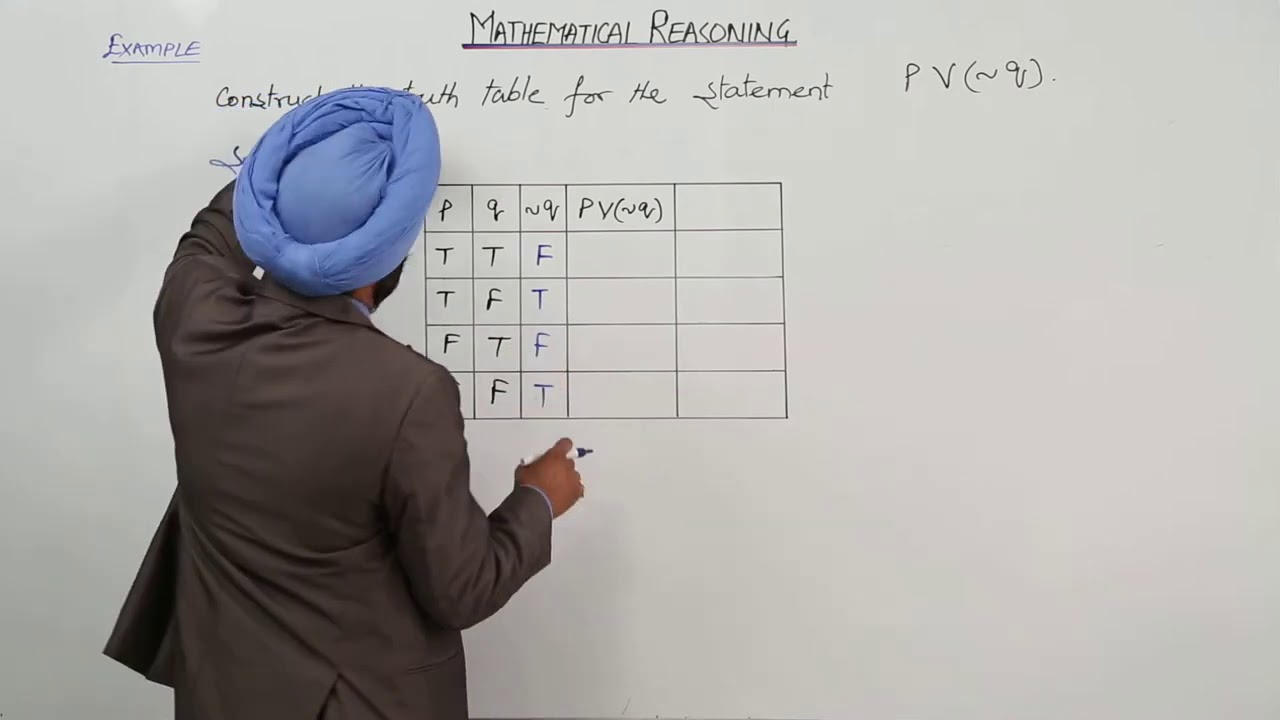 MATHEMATICAL REASONING
EXAMPLE
Construct truth table for the statement P V (~q).
p q ~q P V(~q)
T T F
T F T
F T F
F T